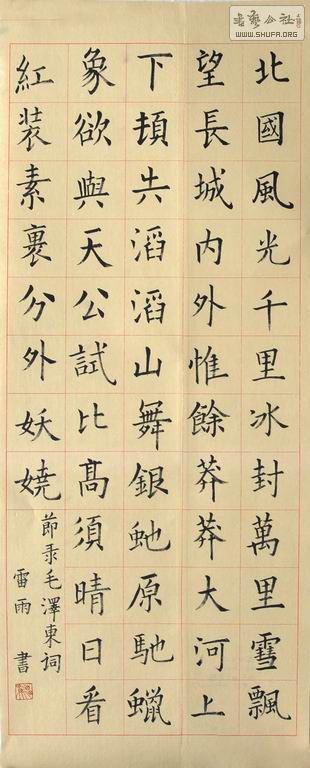 北國風光千里冰封萬里雪飄
望長城内外惟餘莽莽大河上
下頓失滔滔山舞銀虵原馳蠟
象欲與天公試比髙須晴日看
紅裝素裹分外妖嬈
節彔毛澤東词
雷雨書
書藝公社
WWW.SHUFA.ORG